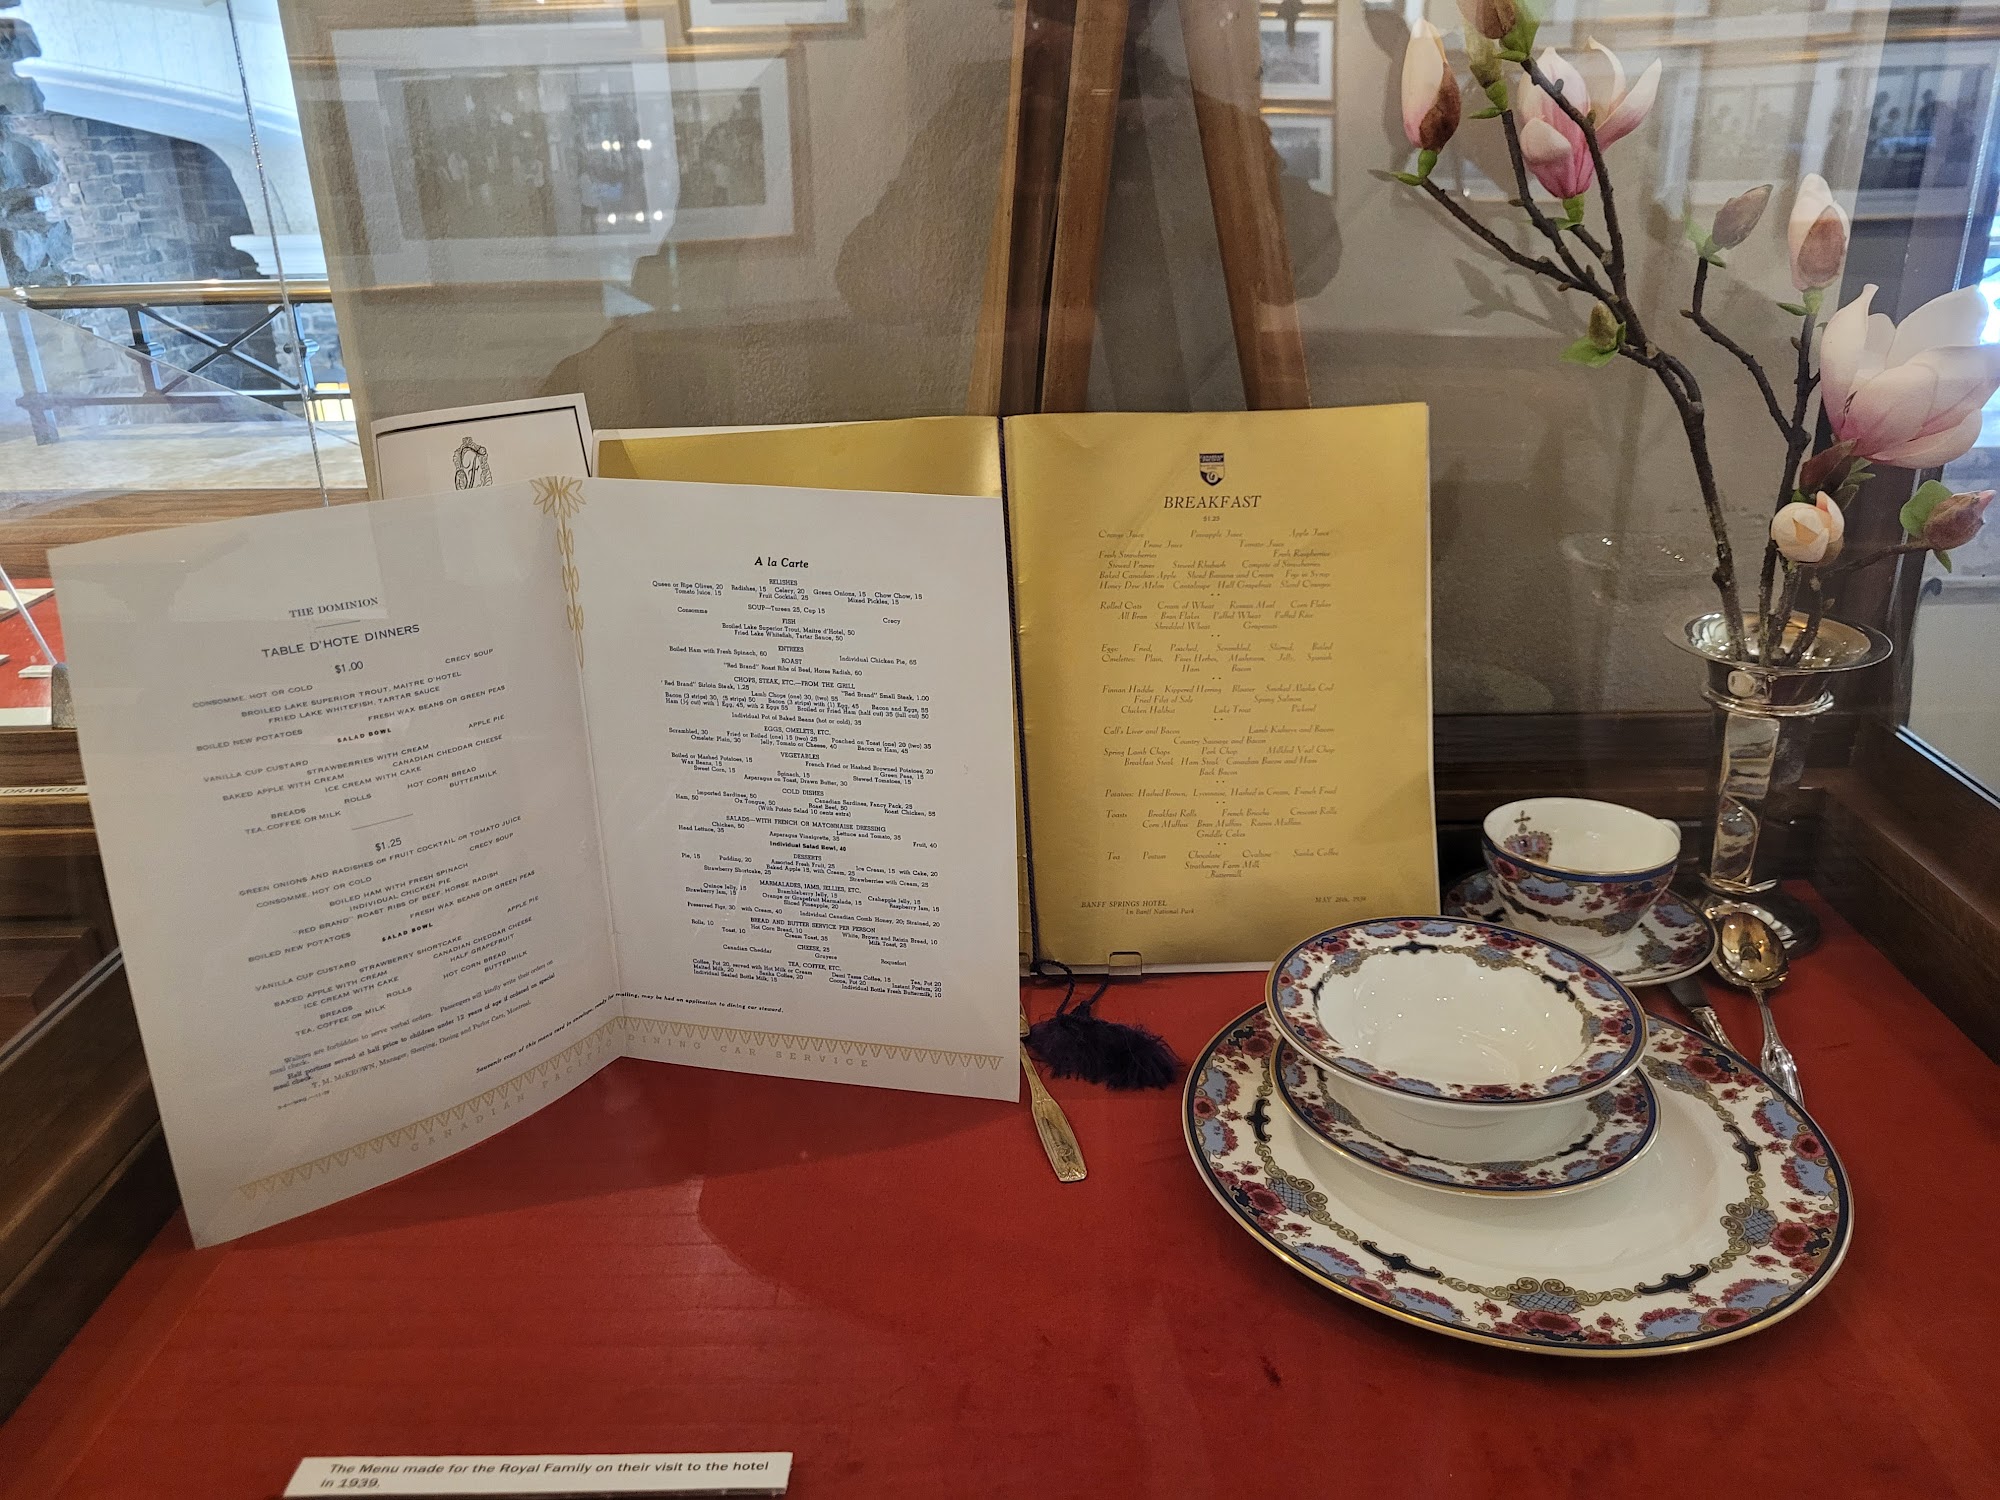 THE DOMINION
TABLE D'HOTE DINNERS
$1.00
CONSOMME, HOT OR COLD CRECY SOUP
BROILED LAKE SUPERIOR TROUT, MAITRE D'HOTEL
FRIED LAKE WHITEFISH, TARTAR SAUCE
BOILED NEW POTATOES FRESH WAX BEANS OR GREEN PEAS
SALAD BOWL
VANILLA CUP CUSTARD STRAWBERRIES WITH CREAM APPLE PIE
BAKED APPLE WITH CREAM CANADIAN CHEDDAR CHEESE
ICE CREAM WITH CAKE
BREADS ROLLS HOT CORN BREAD
TEA, COFFEE OR MILK BUTTERMILK
$1.25
GREEN ONIONS AND RADISHES OR FRUIT COCKTAIL OR TOMATO JUICE
CONSOMME, HOT OR COLD CRECY SOUP
BOILED HAM WITH FRESH SPINACH
INDIVIDUAL CHICKEN PIE
"RED BRAND" ROAST RIBS OF BEEF, HORSE RADISH
BOILED NEW POTATOES FRESH WAX BEANS OR GREEN PEAS
SALAD BOWL
VANILLA CUP CUSTARD STRAWBERRY SHORTCAKE APPLE PIE
BAKED APPLE WITH CREAM CANADIAN CHEDDAR CHEESE
ICE CREAM WITH CAKE HALF GRAPEFRUIT
BREADS ROLLS HOT CORN BREAD
TEA, COFFEE OR MILK BUTTERMILK
Waiters are forbidden to serve verbal orders. Passengers will kindly write their orders on
meal check.
Half portions served at half price to children under 12 years of age if ordered on special
meal check.
T. M. McKEOWN, Manager, Sleeping, Dining and Parlor Cars, Montreal.
Souvenir copy of this menu card in envelope, ready for mailing, may be had on application to dining car steward.
CANADIAN PACIFIC DINING CAR SERVICE
A la Carte
RELISHES
Queen or Ripe Olives, 20 Radishes, 15 Celery, 20 Green Onions, 15 Chow Chow, 15
Tomato Juice, 15 Fruit Cocktail, 25 Mixed Pickles, 15
SOUP—Tureen 25, Cup 15
Consomme Crecy
FISH
Broiled Lake Superior Trout, Maitre d'Hotel, 50
Fried Lake Whitefish, Tartar Sauce, 50
ENTREES
Boiled Ham with Fresh Spinach, 60 Individual Chicken Pie, 65
ROAST
"Red Brand" Roast Ribs of Beef, Horse Radish, 60
CHOPS, STEAK, ETC.—FROM THE GRILL
"Red Brand" Sirloin Steak, 1.25 Lamb Chops (one) 30, (two) 55 "Red Brand" Small Steak, 1.00
Bacon (3 strips) 30, (5 strips) 50 Bacon (3 strips) with (1) Egg, 45 Bacon and Eggs, 55
Ham (½ cut) with 1 Egg, 45, with 2 Eggs 55 Broiled or Fried Ham (half cut) 35 (full cut) 50
Individual Pot of Baked Beans (hot or cold), 35
EGGS, OMELETS, ETC.
Scrambled, 30 Fried or Boiled (one) 15 (two) 25 Poached on Toast (one) 20 (two) 35
Omelets: Plain, 30 Jelly, Tomato or Cheese, 40 Bacon or Ham, 45
VEGETABLES
Boiled or Mashed Potatoes, 15 French Fried or Hashed Browned Potatoes, 20
Wax Beans, 15 Green Peas, 15
Sweet Corn, 15 Spinach, 15 Stewed Tomatoes, 15
Asparagus on Toast, Drawn Butter, 30
COLD DISHES
Imported Sardines, 50 Canadian Sardines, Fancy Pack, 25
Ham, 50 Ox Tongue, 50 Roast Beef, 50 Roast Chicken, 85
(With Potato Salad 10 cents extra)
SALADS—WITH FRENCH OR MAYONNAISE DRESSING
Chicken, 50 Lettuce and Tomato, 35
Head Lettuce, 35 Asparagus Vinaigrette, 35 Fruit, 40
Individual Salad Bowl, 40
DESSERTS
Pie, 15 Pudding, 20 Assorted Fresh Fruit, 25 Ice Cream, 15 with Cake, 20
Strawberry Shortcake, 25 Baked Apple 15, with Cream, 25 Strawberries with Cream, 25
MARMALADES, JAMS, JELLIES, ETC.
Quince Jelly, 15 Brambleberry Jelly, 15 Crabapple Jelly, 15
Strawberry Jam, 15 Orange or Grapefruit Marmalade, 15 Raspberry Jam, 15
Sliced Pineapple, 20
Preserved Figs, 30 with Cream, 40 Individual Canadian Comb Honey, 20; Strained, 20
BREAD AND BUTTER SERVICE PER PERSON
Rolls, 10 Hot Corn Bread, 10 White, Brown and Raisin Bread, 10
Toast, 10 Cream Toast, 35 Milk Toast, 25
CHEESE, 25
Canadian Cheddar Gruyere Roquefort
TEA, COFFEE, ETC.
Coffee, Pot 20, served with Hot Milk or Cream Demi Tasse Coffee, 15 Tea, Pot 20
Malted Milk, 20 Sanka Coffee, 20 Cocoa, Pot 20 Instant Postum, 20
Individual Sealed Bottle Milk, 15 Individual Bottle Fresh Buttermilk, 10
BREAKFAST
$1.25
Orange Juice Pineapple Juice Apple Juice
Prune Juice Tomato Juice
Fresh Strawberries Fresh Raspberries
Stewed Prunes Stewed Rhubarb Compote of Strawberries
Baked Canadian Apple Sliced Banana and Cream Figs in Syrup
Honey Dew Melon Cantaloupe Half Grapefruit Sliced Oranges
Rolled Oats Cream of Wheat Roman Meal Corn Flakes
All Bran Bran Flakes Puffed Wheat Puffed Rice
Shredded Wheat Grapenuts
Eggs: Fried, Poached, Scrambled, Shirred, Boiled
Omelettes: Plain, Fines Herbes, Mushroom, Jelly, Spanish
Ham Bacon
Finnan Haddie Kippered Herring Bloater Smoked Alaska Cod
Fried Filet of Sole Spring Salmon
Chicken Halibut Lake Trout Pickerel
Calf's Liver and Bacon Lamb Kidneys and Bacon
Country Sausage and Bacon
Spring Lamb Chops Pork Chop Milkfed Veal Chop
Breakfast Steak Ham Steak Canadian Bacon and Ham
Back Bacon
Potatoes: Hashed Brown, Lyonnaise, Hashed in Cream, French Fried
Toasts Breakfast Rolls French Brioche Crescent Rolls
Corn Muffins Bran Muffins Raisin Muffins
Griddle Cakes
Tea Postum Chocolate Ovaltine Sanka Coffee
Strathmore Farm Milk
Buttermilk
BANFF SPRINGS HOTEL MAY 26th, 1939
In Banff National Park
DRAWERS
The Menu made for the Royal Family on their visit to the hotel
in 1939.